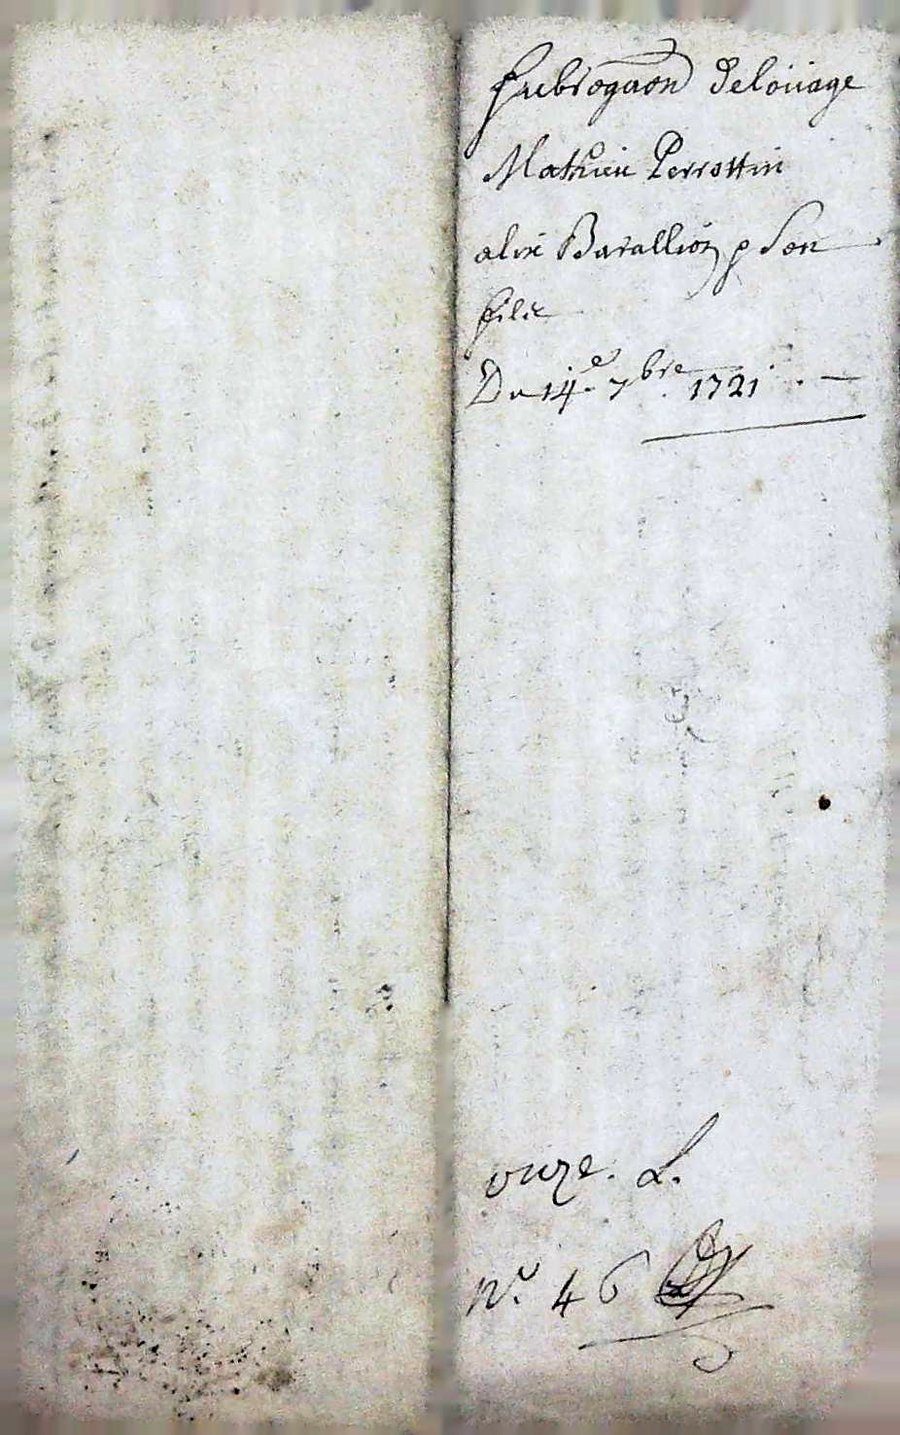 Subrogaon delouage
Mathieu Perrottin
alix Barallion p Son
filz
Du 14.e 7bre 1721 . —
onze. L.
No. 46